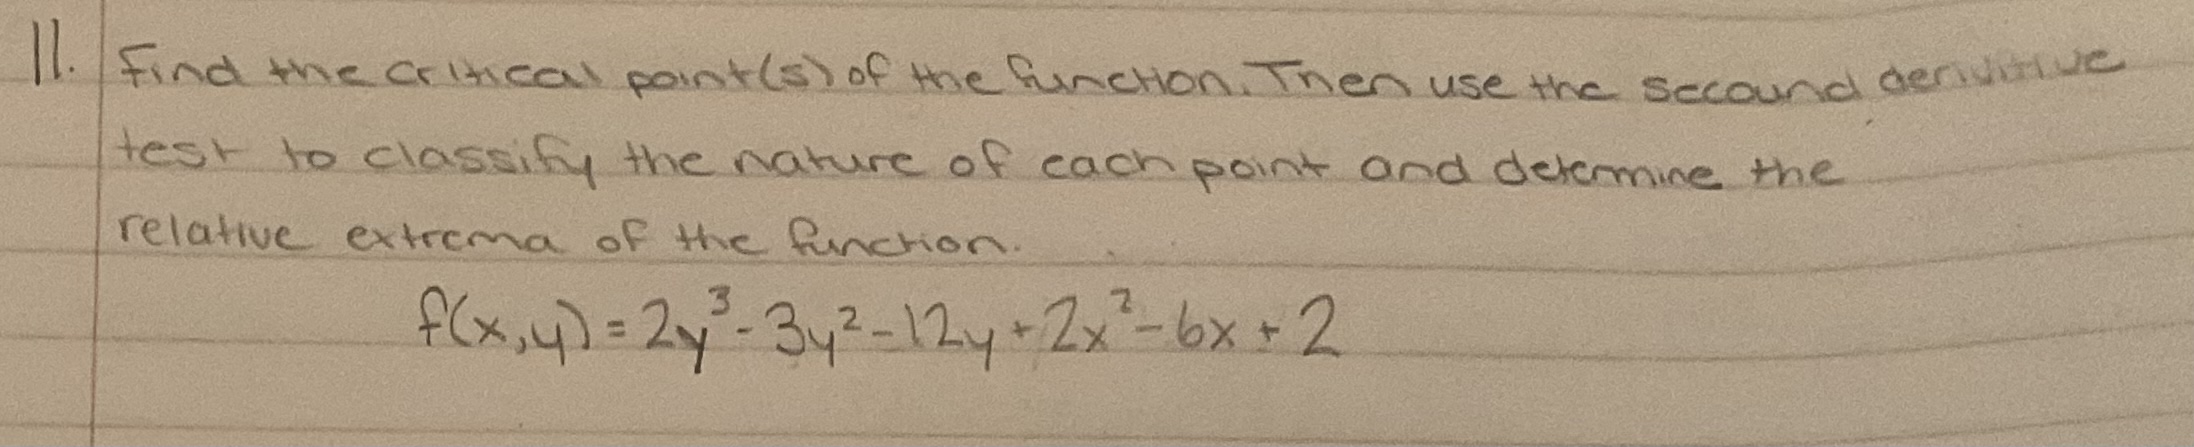 11. Find the critical point(s) of the function. Then use the secound derivitive
test to classify the nature of each point and determine the
relative extrema of the function.
f(x,y)=2y³-3y²-12y+2x²-6x+2